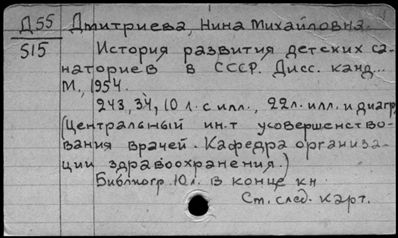 Д55 Дмитриева, Нина Михайловна.
515 История развития детских са-
наториев в СССР. Дисс. канд...
М., 1954.
243, 34, 10 л. с илл., 22 л. илл. и диагр.
(Центральный ин-т усовершенство-
вания врачей. Кафедра организа-
ции здравоохранения.)
Библиогр. 10 л. в конце кн.
См. след. карт.